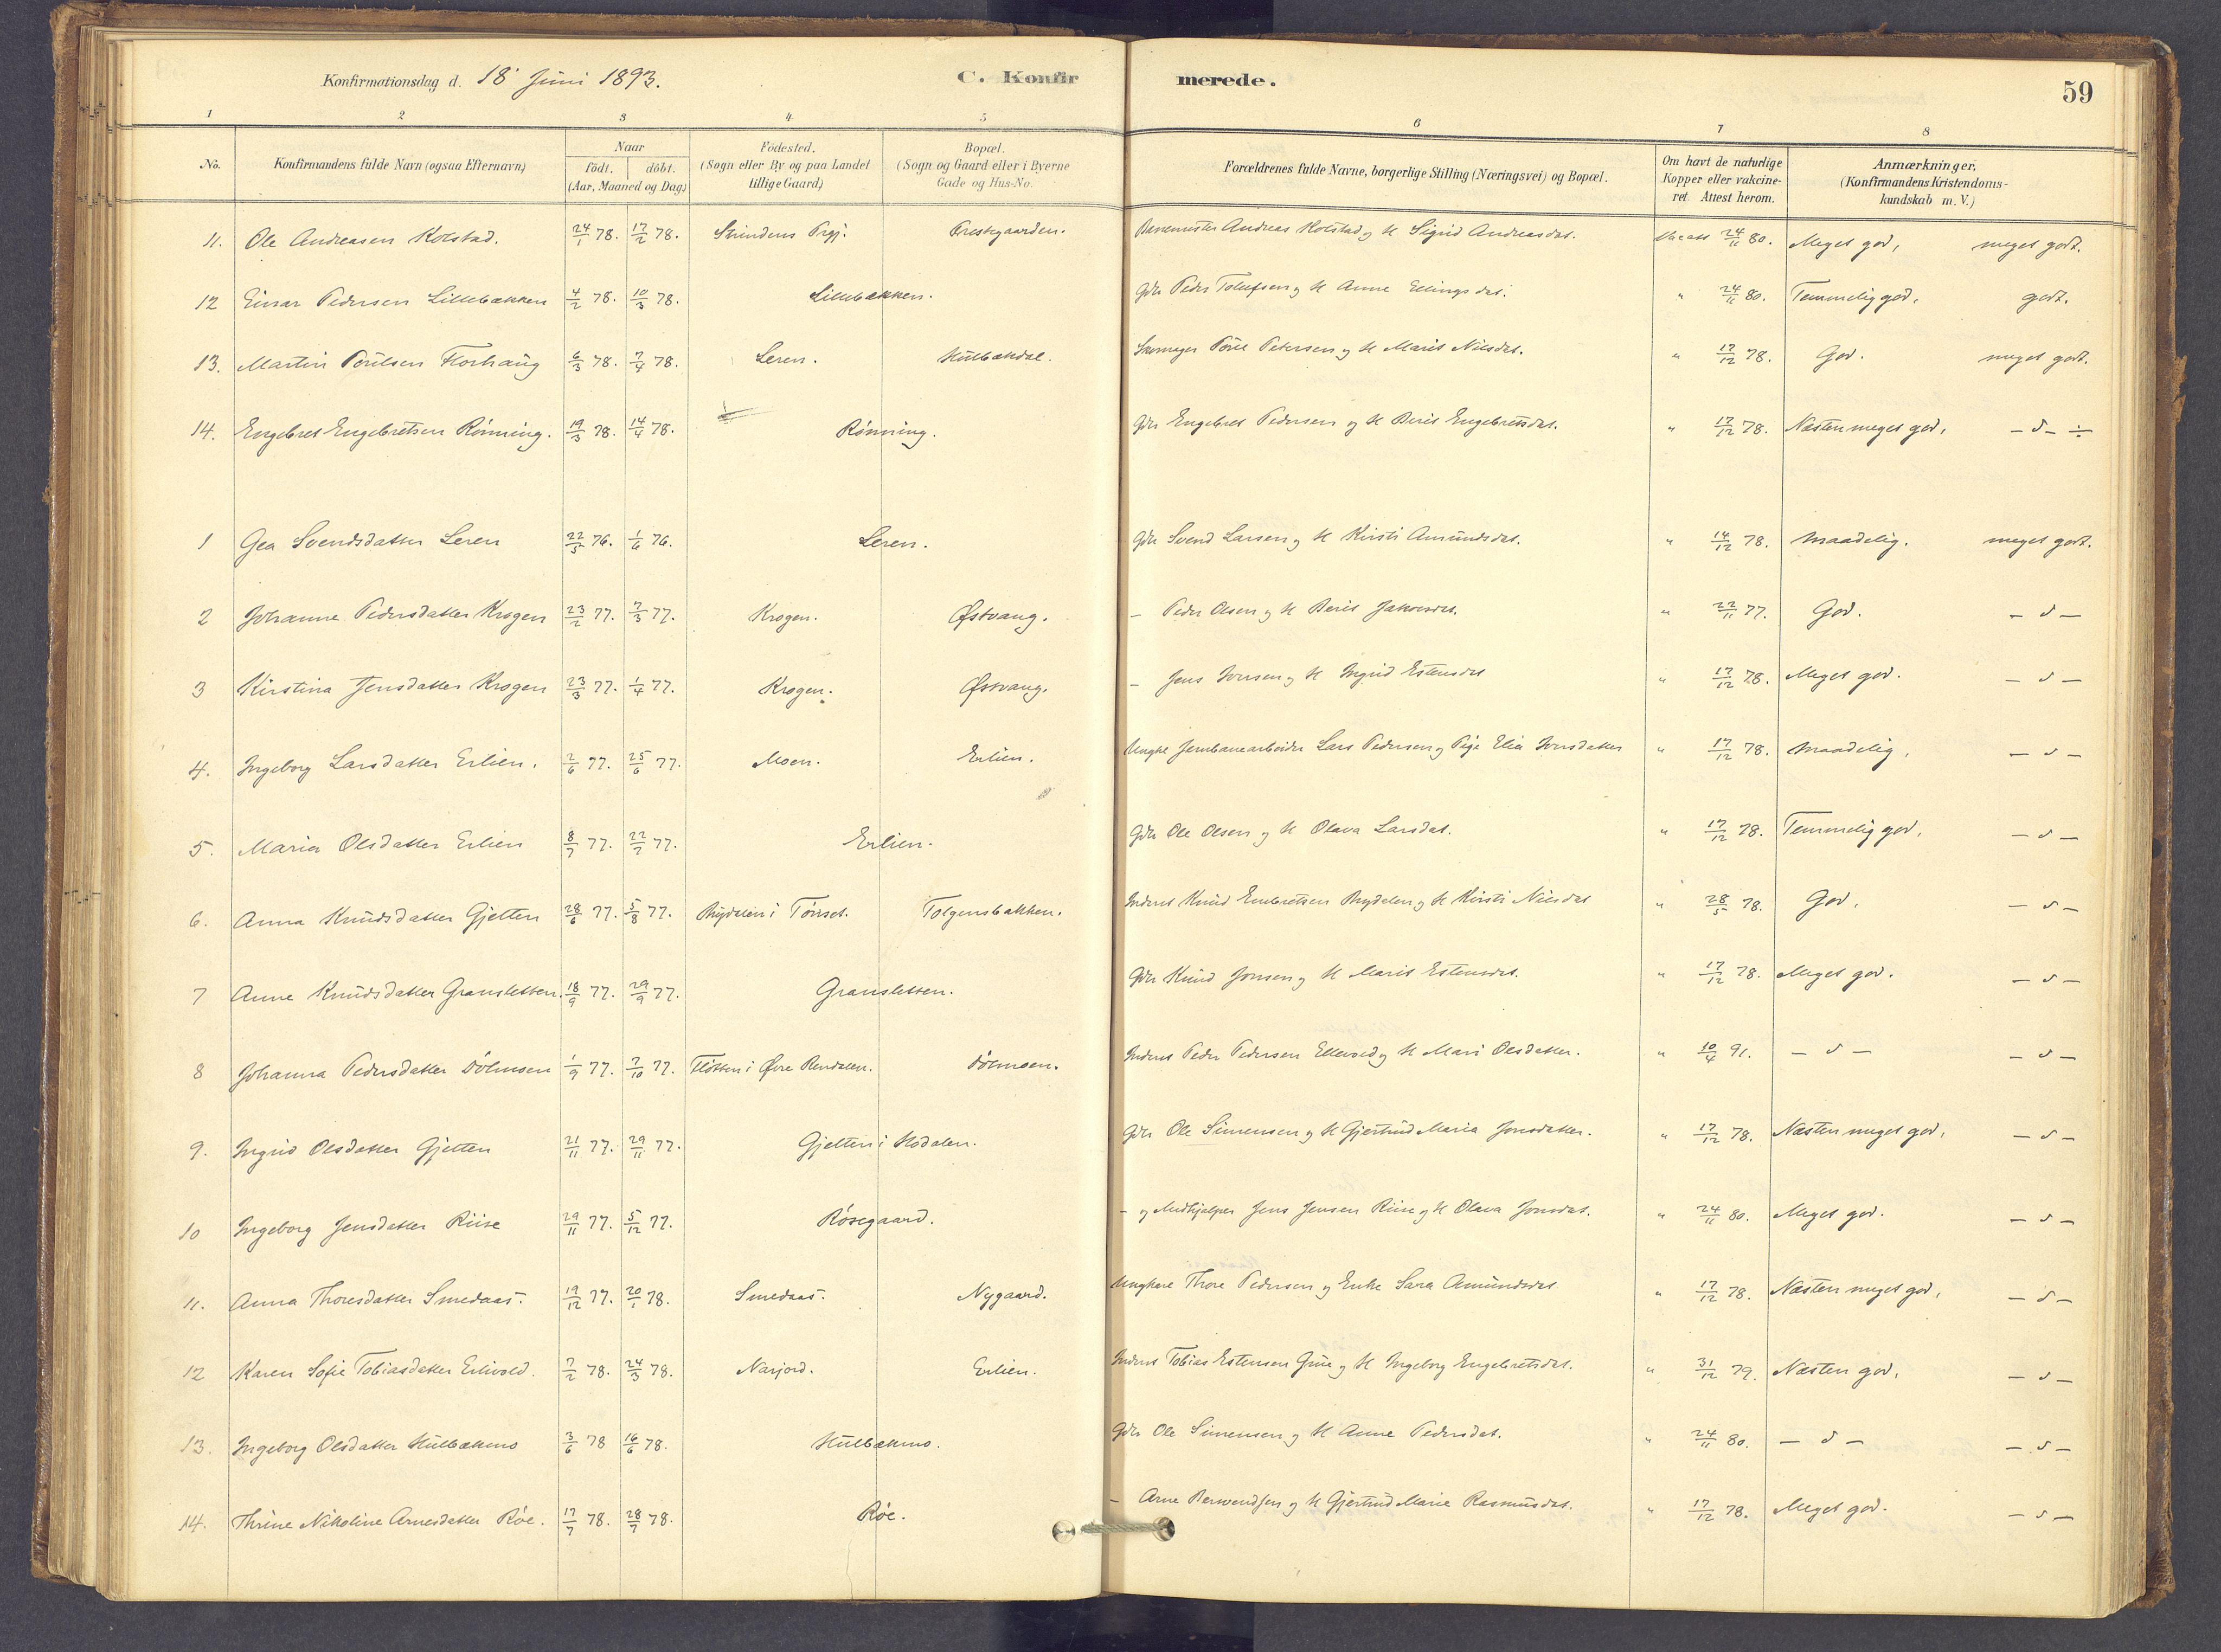 Konfirmationsdag d. 18 Juni 1893. C. Konfirmerede. 59
1 2 3 4 5 6 7 8
No. Konfirmandens fulde Navn (ogsaa Efternavn) Naar födt. döbt. (Aar, Maaned og Dag) Födested. (Sogn eller By og paa Landet tillige Gaard) Bopæl. (Sogn og Gaard eller i Byerne Gade og Hus-No. Forældrenes fulde Navne, borgerlige Stilling (Næringsvei) og Bopæl. Om havt de naturlige Kopper eller vakcineret. Attest herom. Anmærkninger, (Konfirmandens Kristendomskundskab m. V.)
11. Ole Andreasen Kolstad. 24/1 78. 17/2 78. Prgj. Prestegaarden. Andreas Kolstad og H Sigrid Andreasdat. 24/11 80. Meget god, meget godt.
12 Einar Pedersen Lillebakken 4/2 78. 10/3 78. Lillebakken. Gdr Peder Tollefsen og H Anne Ellingsdat. " 24/11 80. Temmelig god, godt.
13. Martin Poulsen Florhaug 6/3 78. 7/4 78. Leren. Hulbækdal. Skomager Poul Petersen og H Marit Nilsdat. " 17/12 78. God. meget godt.
14. Engebret Engebretsen Rönning. 19/3 78. 14/4 78. Rönning. Gdr Engebret Pedersen og H Berit Engebretsdat. " 17/12 78. Næsten meget god, – d – ÷
1 Gea Svendsdatter Leren 22/5 76. 1/6 76. Leren. Gdr Svend Larsen og H Kirsti Amundsdat. " 14/12 78. Maadelig. meget godt.
2 Johanne Pedersdatter Krogen 23/2 77. 7/3 77. Krogen. Østvang. – Peder Olsen og H Berit Jakobsdat. " 22/11 77. God. – d –
3 Kirstina Jensdatter Krogen 23/3 77. 1/4 77. Krogen. Østvang. – Jens Iversen og H Ingrid Estensdat " 17/12 78. Meget god. – d –
4. Ingeborg Larsdatter Erlien. 2/6 77. 25/6 77. Moen. Erlien. Ungkr Jernbanearbeider Lars Pedersen og Pige Elia Jonsdatter " 17/12 78. Maadelig, – d –
5. Maria Olsdatter Erlien 8/7 77. 22/7 77. Erlien. Gdr Ole Olsen og H Olava Larsdat. " 17/12 78. Temmelig god, – d –
6. Anna Knudsdatter Gjelten 28/6 77. 5/8 77. Brydalen i Tönset. Tolgensbakken. Inderst Knud Embretsen Brydalen og H Kirsti Nilsdat " 28/5 78. God, – d –
7 Anne Knudsdatter Gransletten. 18/9 77. 29/9 77. Gransletten. Gdr Knud Jonsen og H Marit Estensdat. " 17/12 78. Meget god. – d –
8 Johanna Pedersdatter Dölmoen 1/9 77. 7/10 77. Flötten i Øvre Rendalen. Dölmoen. Inderst Peder Pedersen Ellevold og H Mari Olsdatter. " 10/4 91. – d – – d –
9. Ingrid Olsdatter Gjelten 21/11 77. 29/11 77. Gjelten i Hodalen. Gdr Ole Simensen og H Gjertrud Maria Jonsdatter. " 17/12 78. Næsten meget god, – d –
10 Ingeborg Jensdatter Riise 29/11 77. 5/12 77. Rösegaard. – og Medhjælper Jens Jensen Riise og H Olava Jonsdat. " 24/11 80. Meget god. – d –
11. Anna Thoresdatter Smedaas. 19/12 77. 20/1 78. Smedaas. Nygaard. Ungkarl Thore Pedersen og Enke Sara Amundsdat " 17/12 78. Næsten meget god, – d –
12 Karen Sofie Tobiasdatter Erlivold. 7/2 78. 24/3 78. Narjord. Erlien. Inderst Tobias Estensen Grue og H Ingeborg Engebretsdat. " 31/12 79. Næsten god, – d –
13. Ingeborg Olsdatter Hulbækmo 3/6 78 16/6 78. Hulbækmo. Gdr Ole Simensen og H Anne Pedersdat. " 24/11 80. – d – – d –
14. Thrine Nikoline Arnesdatter Röe. 17/7 78. 28/7 78. Röe. – Arne Berwendsen og H Gjertrud Marie Rasmusdat. " 17/12 78. Meget god. – d –